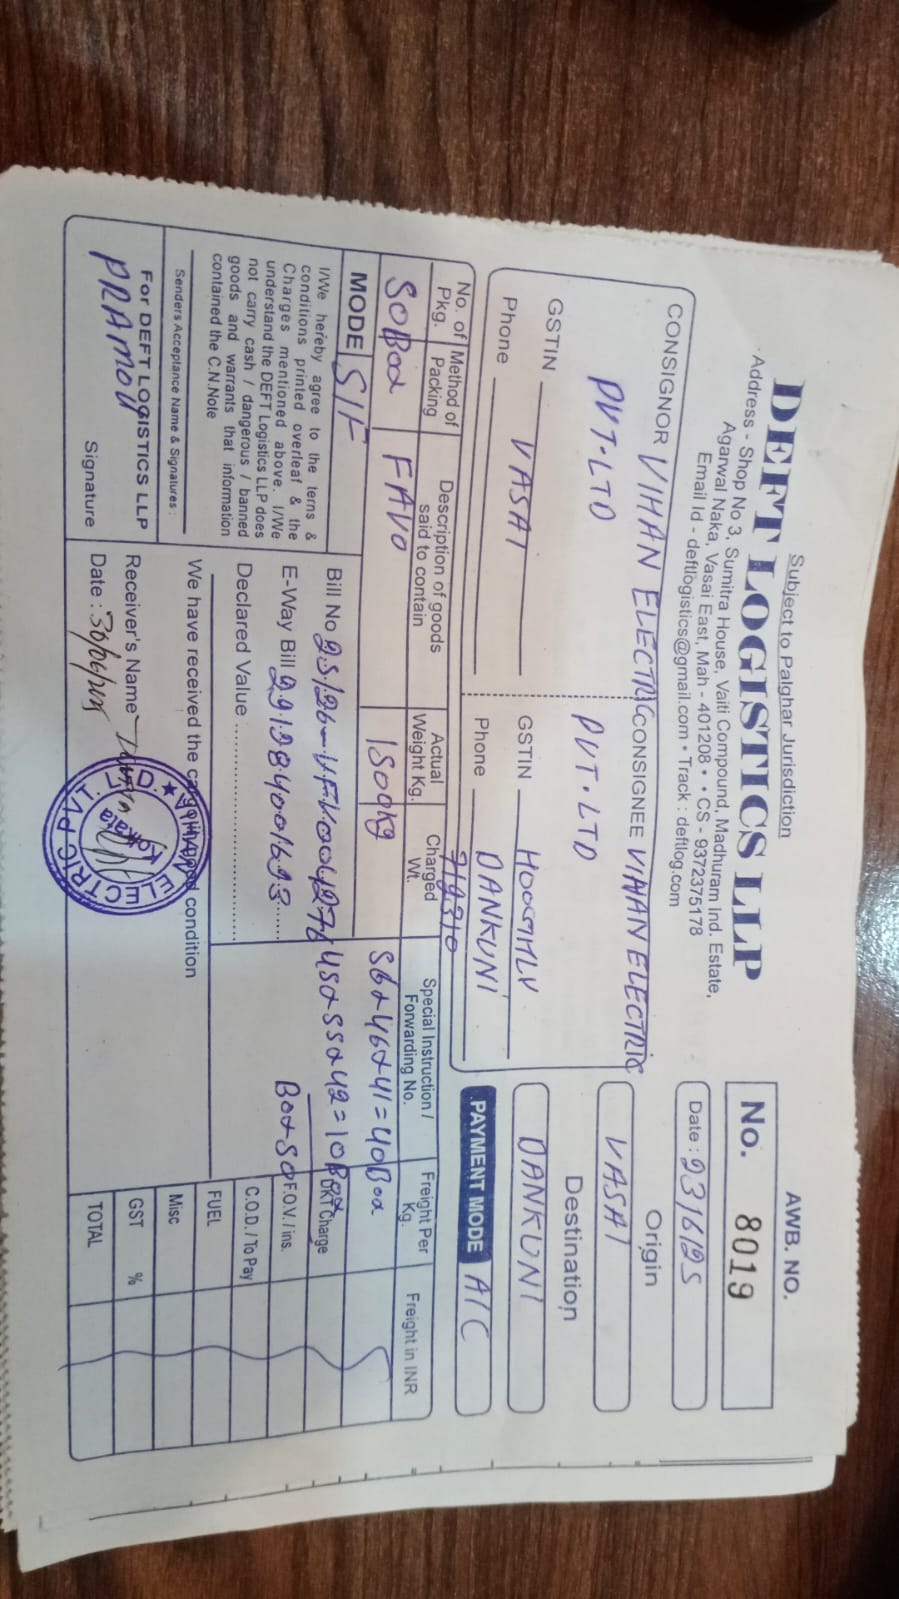 Subject to Palghar Jurisdiction
DEFT LOGISTICS LLP
Address - Shop No 3, Sumitra House, Vaiti Compound, Madhuram Ind. Estate,
Agarwal Naka, Vasai East, Mah - 401208 • CS - 9372375178
Email Id - deftlogistics@gmail.com • Track : deftlog.com
AWB. NO.
No. 8019
Date : 23/6/25
CONSIGNOR VIHAN ELECTRIC
PVT.LTD
VASAI
GSTIN
Phone
CONSIGNEE VIHAN ELECTRIC
PVT.LTD
HOOGHLY
GSTIN
DANKUNI
Phone
712310
Origin
VASAI
Destination
DANKUNI
PAYMENT MODE A/C
No. of Pkg.
Method of Packing
Description of goods said to contain
Actual Weight Kg.
Charged Wt.
Special Instruction / Forwarding No.
Freight Per Kg.
Freight in INR
50Box FAVO 1500Kg 56x46x41=40Box
MODE S/F
45x55x42=10Box
Box 50
Bill No
E-Way Bill
Declared Value
I/We hereby agree to the terns &
conditions printed overleaf & the
Charges mentioned above. I/We
understand the DEFT Logistics LLP does
not carry cash / dangerous / banned
goods and warrants that information
contained the C.N.Note
Senders Acceptance Name & Signatures :
For DEFT LOGISTICS LLP
Signature
We have received the condition
Receiver's Name
Date : 30/06/
VIHAN ELECTRIC PVT. LTD. ★
Kolkata
Charge
F.O.V. / ins.
C.O.D. / To Pay
FUEL
Misc
GST %
TOTAL